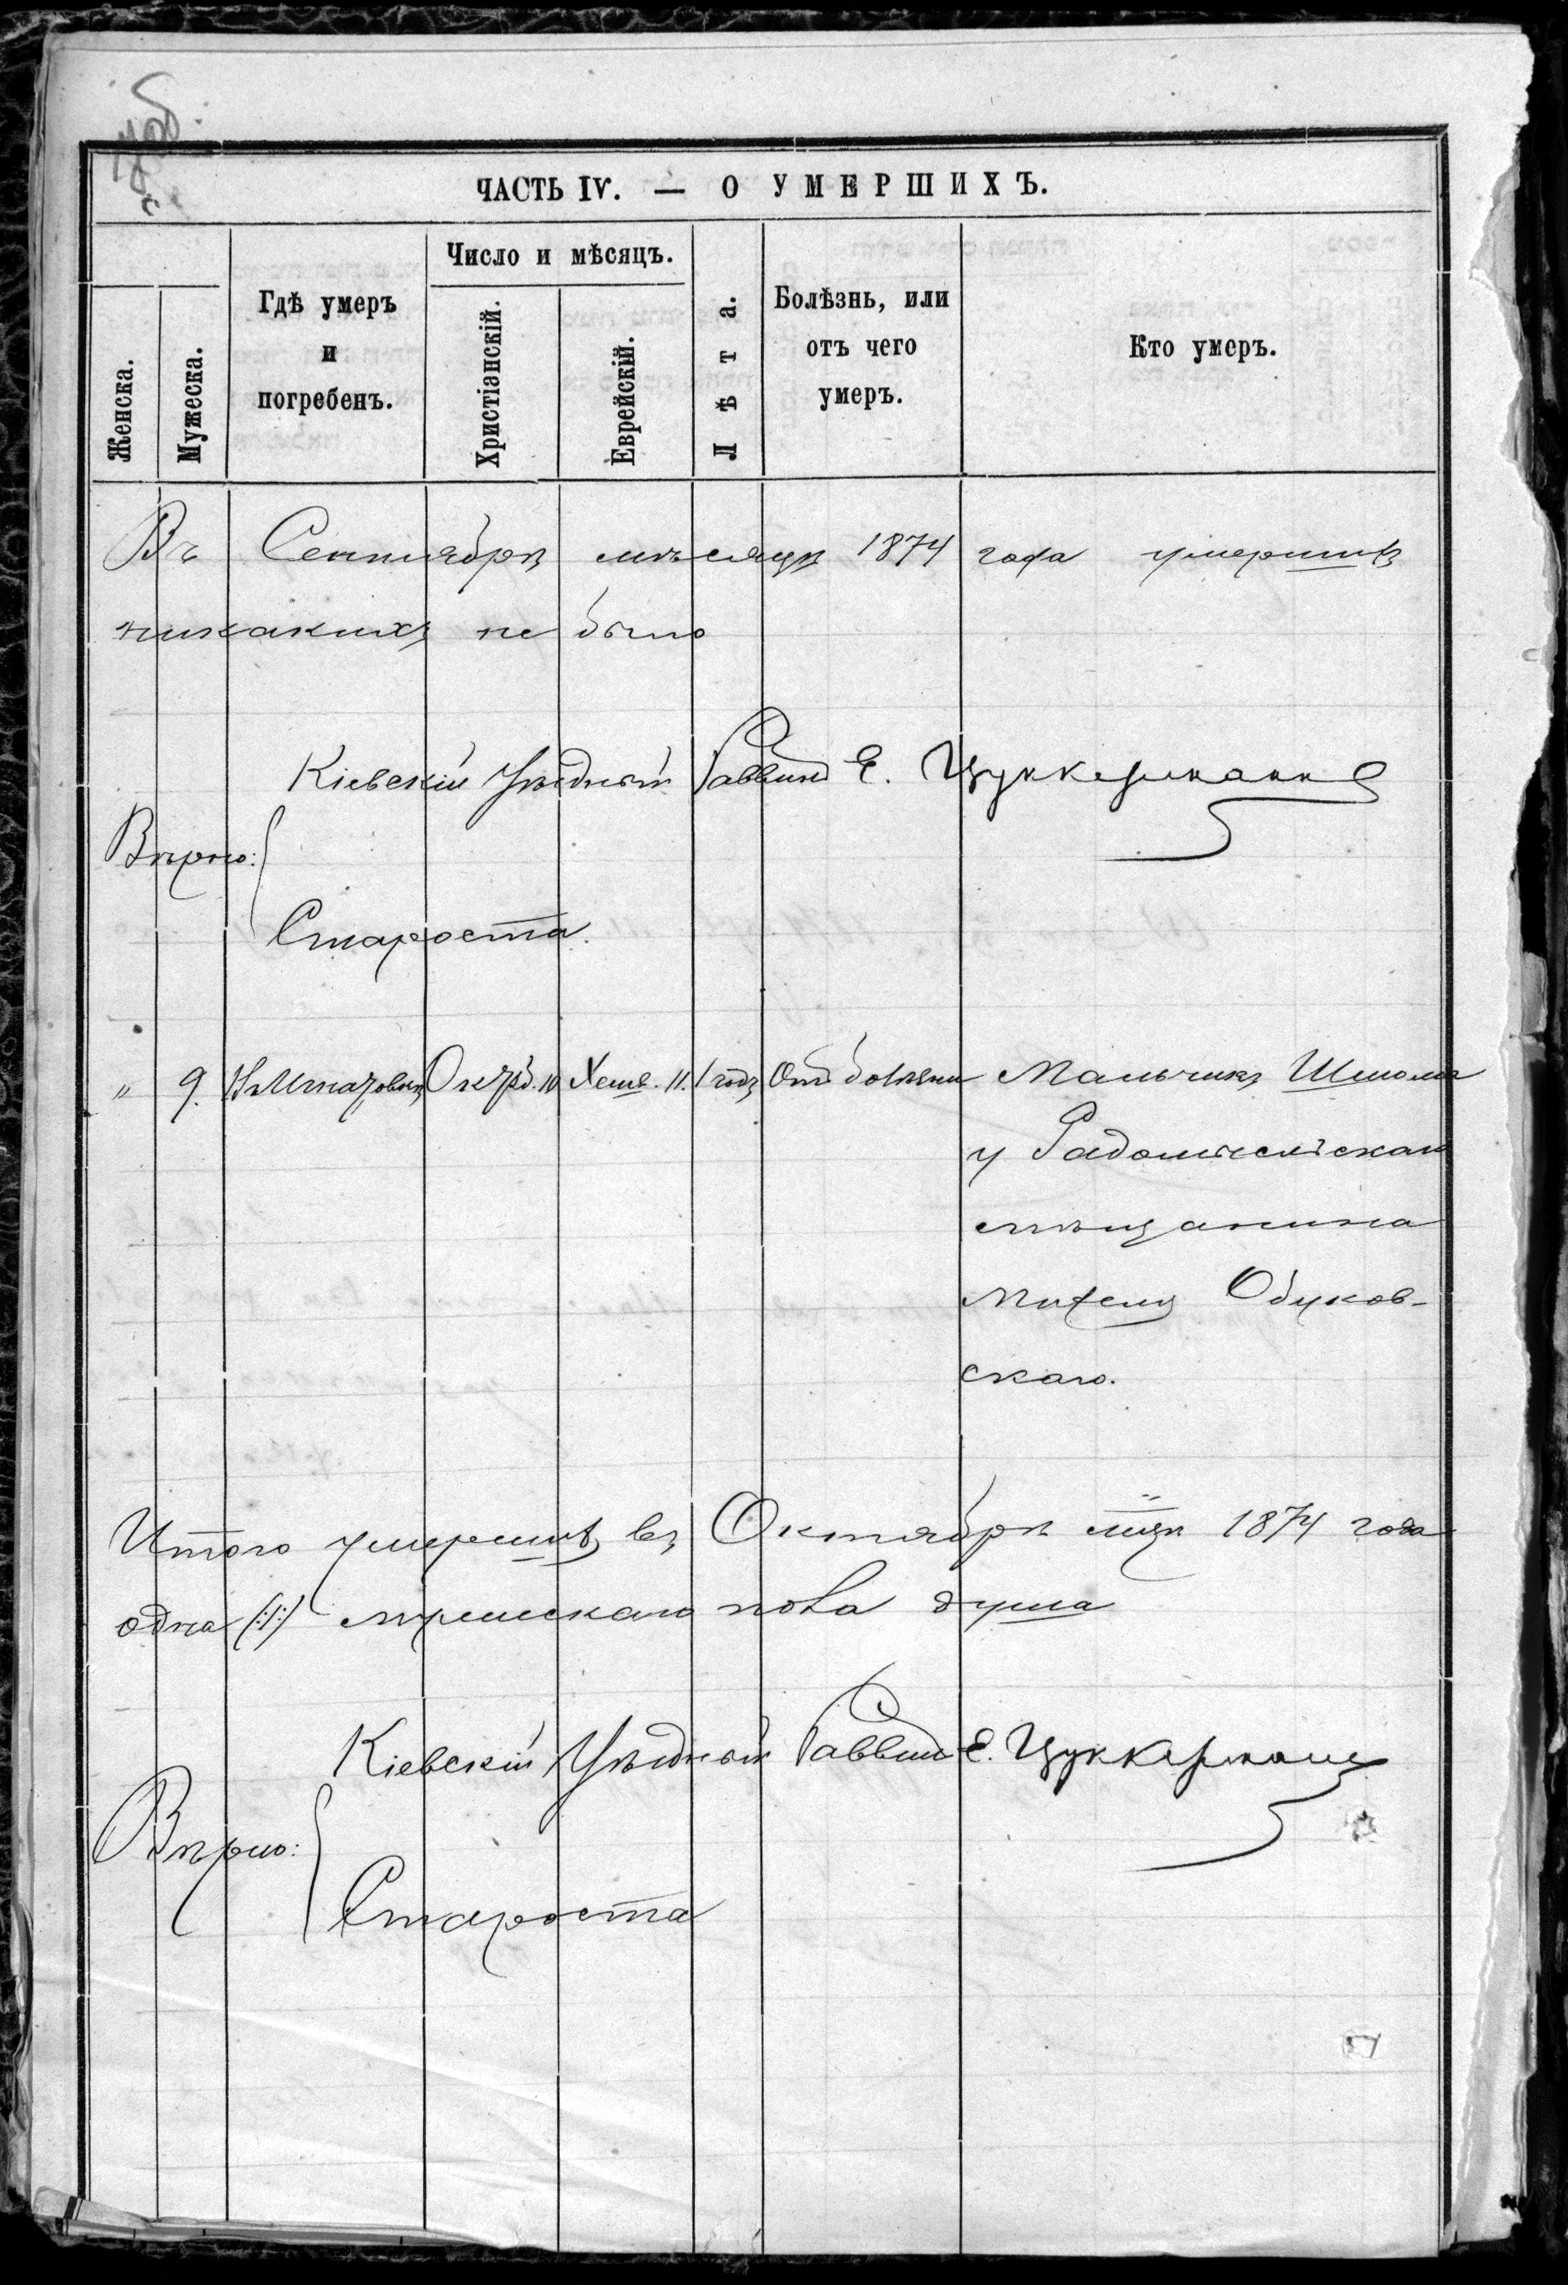 ЧАСТЬ IV. — О УМЕРШИХЪ.
Женска.
Мужеска.
Гдѣ умеръ
и
погребенъ.
Число и мѣсяцъ.
Христіанскій.
Еврейскій.
Лѣта.
Болѣзнь, или
отъ чего
умеръ.
Кто умеръ.
Въ Сентябрѣ мѣсяцѣ 1874 года умершихъ
никакихъ не было
Кіевскій Уѣздный Раввинъ Е. Цуккерманъ
Вѣрно:
Староста.
" 9. Въ Игнатовкѣ Октяб. 10 Хешв. 11. 1 годъ Отъ болѣзни Мальчикъ Шмома
у Радомысльскаго
мѣщанина
Обуков-
скаго.
Итого умершихъ въ Октябрѣ мцѣ 1874 года
одна (:1:) мужескаго пола душа
Кіевскій Уѣздный Раввинъ Е. Цуккерманъ
Вѣрно:
Староста